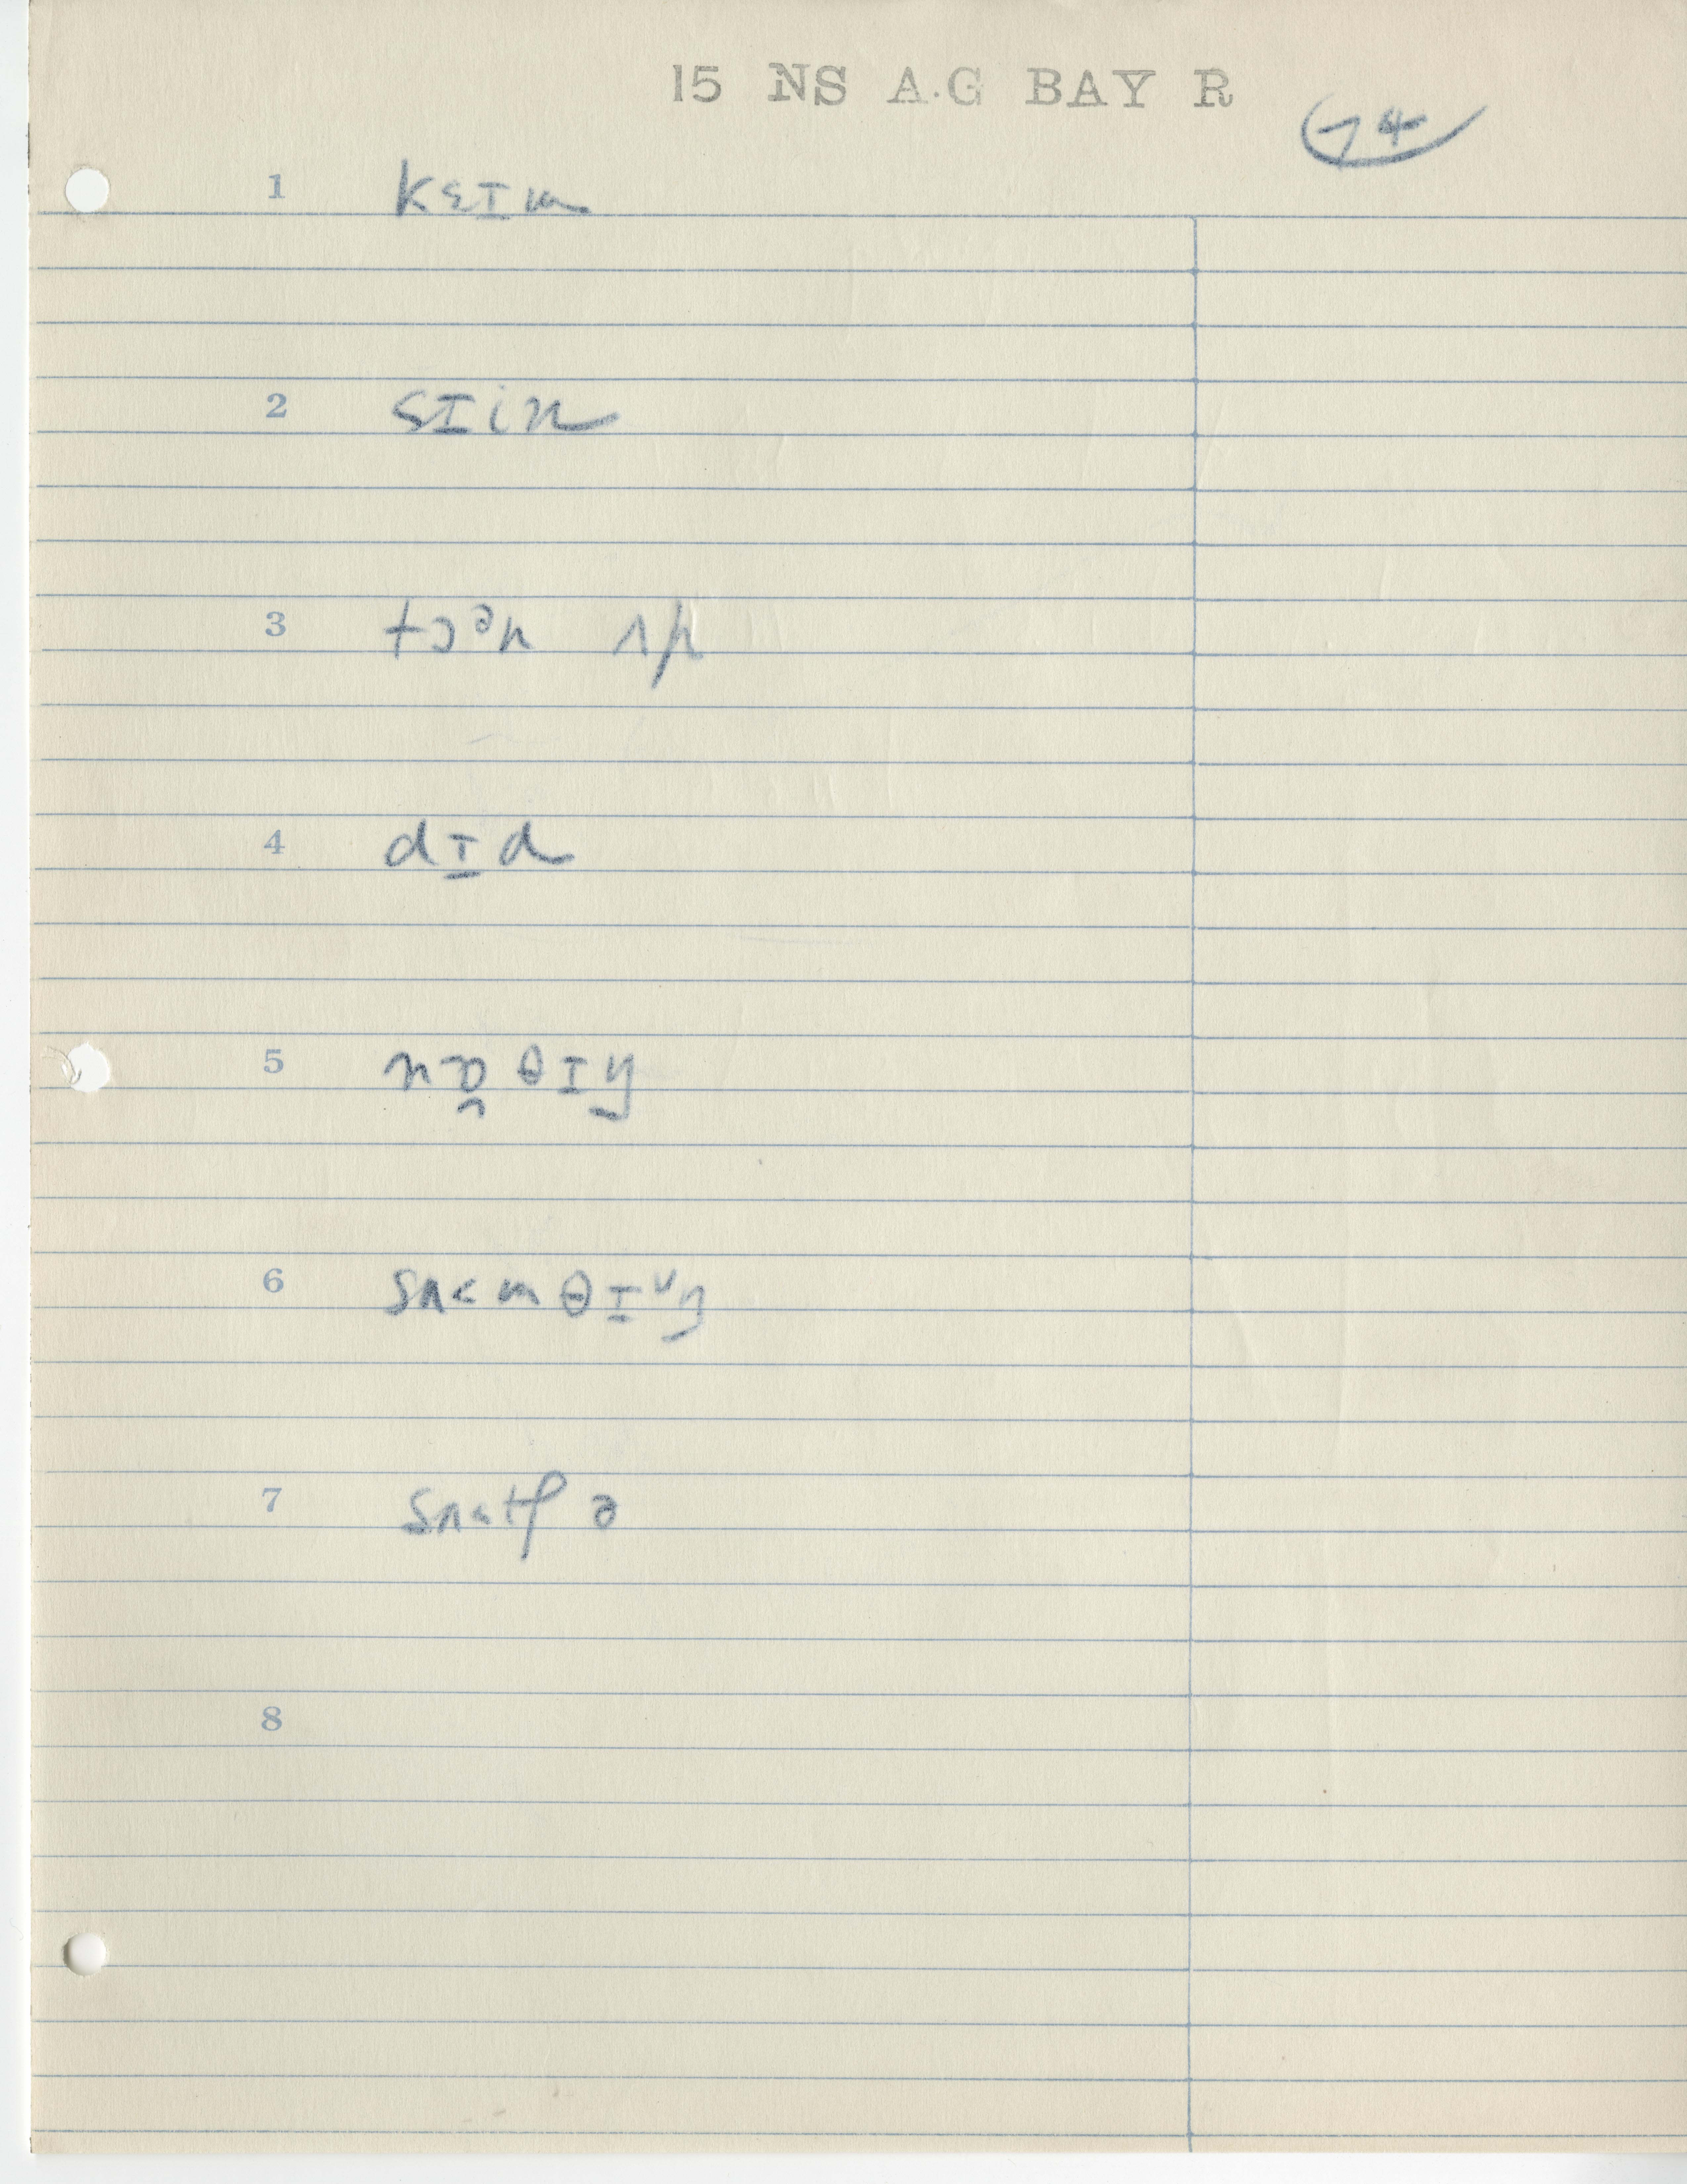 15 NS A.G BAY R
74
1 kɛɪm
2 sɪin
3 tɔᵊn ʌp
4 dɪd
5 nɒ̯θɪŋ
6 sʌ<mθɪᶺŋ
7 sʌ<tʃ ə
8